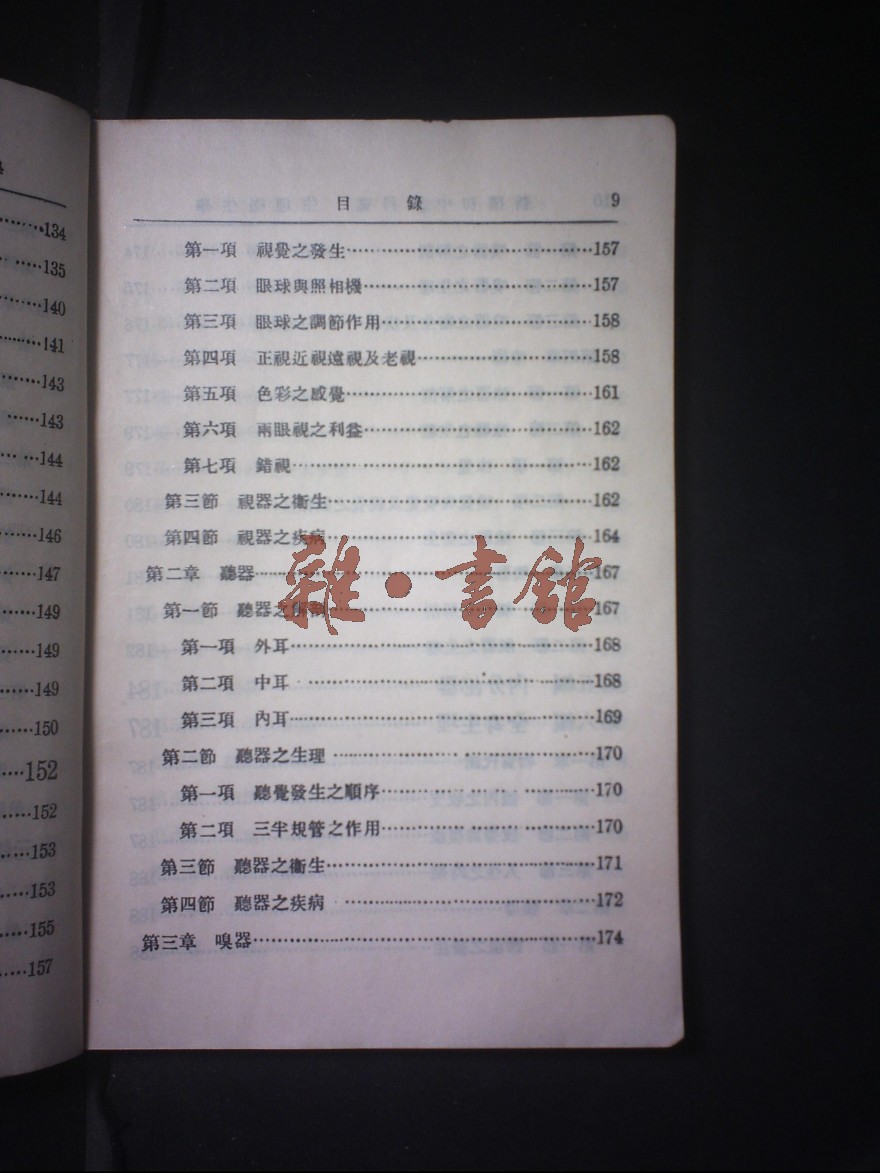 134
135
140
141
143
143
144
144
146
147
149
149
149
150
152
152
153
153
155
157
目錄 9
第一項 視覺之發生 157
第二項 眼球與照相機 157
第三項 眼球之調節作用 158
第四項 正視近視遠視及老視 158
第五項 色彩之感覺 161
第六項 兩眼視之利益 162
第七項 錯視 162
第三節 視器之衞生 162
第四節 視器之疾病 164
第二章 聽器 167
第一節 聽器之解剖 167
第一項 外耳 168
第二項 中耳 168
第三項 內耳 169
第二節 聽器之生理 170
第一項 聽覺發生之順序 170
第二項 三半規管之作用 170
第三節 聽器之衞生 171
第四節 聽器之疾病 172
第三章 嗅器 174
雜·書館